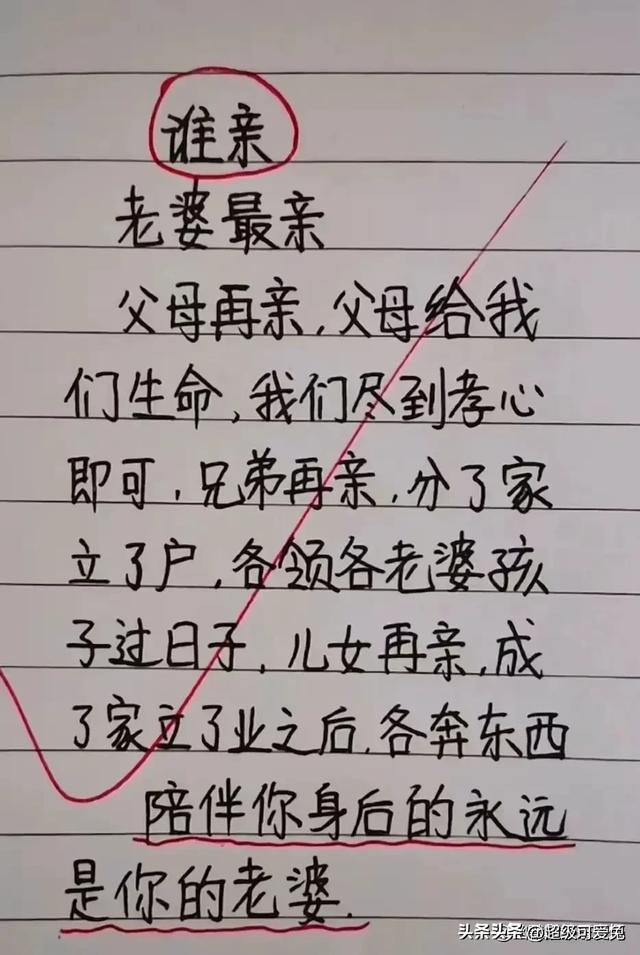 谁亲
老婆最亲
父母再亲,父母给我
们生命,我们尽到孝心
即可,兄弟再亲,分了家
立了户,各领各老婆孩
子过日子,儿女再亲,成
了家立了业之后.各奔东西
陪伴你身后的永远
是你的老婆.
头条头条@超级可爱兔